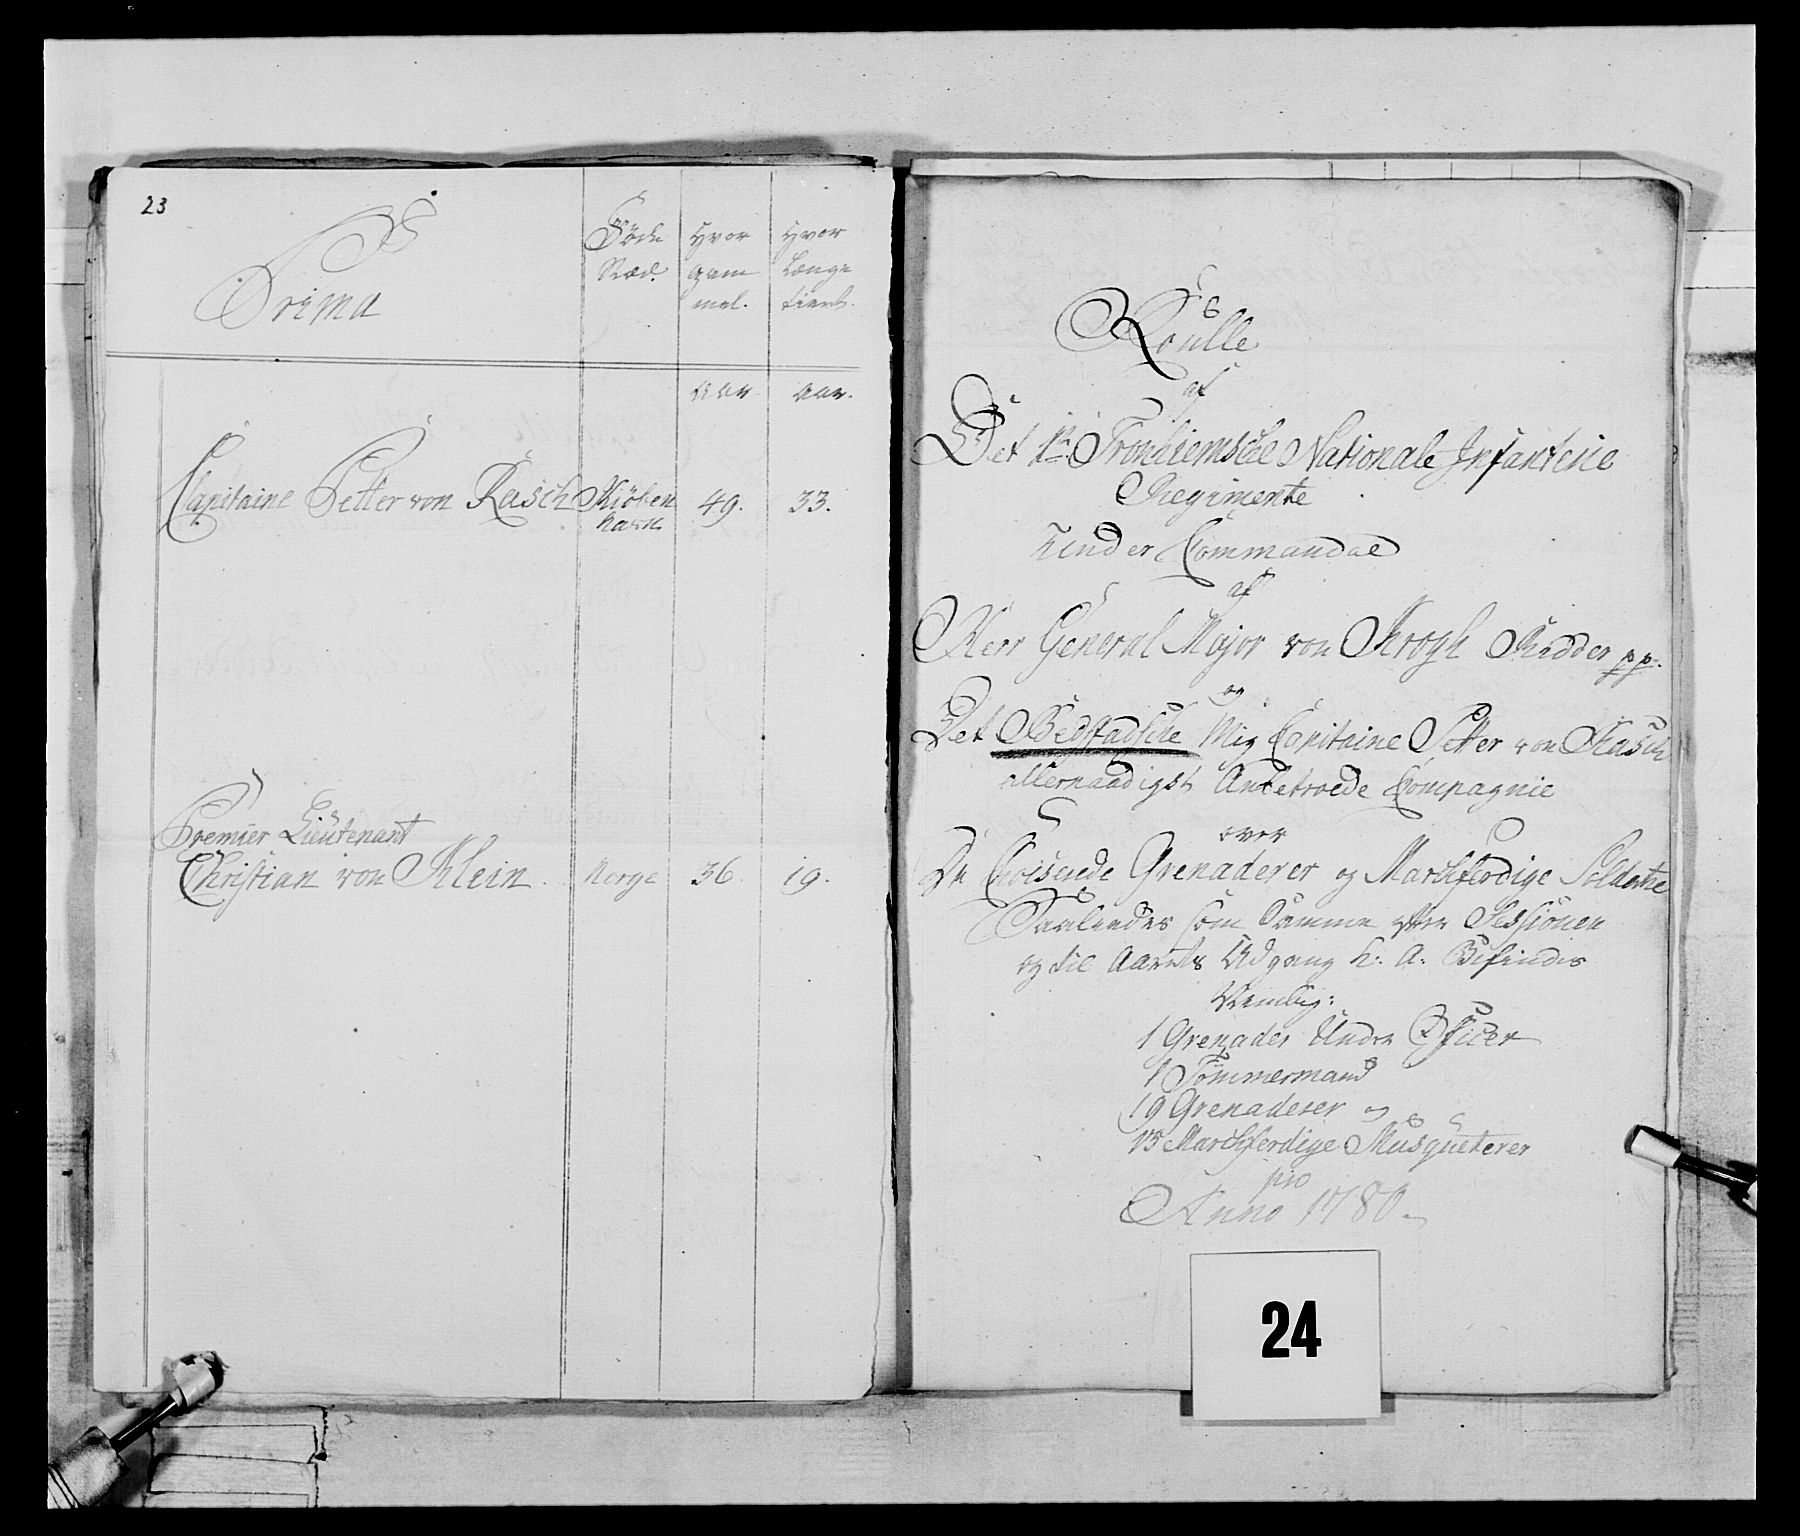 23
Prima
Føde Stæd.
Hvor gammel.
Hvor længe tient.
Aar
Aar.
Capitaine Petter von Rasch Kiöbenhavn 49. 33.
Premier Lieutenant
Christian von Klein. Norge 36. 19.
Roulle
af
Det 1te Tronhiemske Nationale Infanterie
Regimente
under Commando
af
Herr General Major von Krogh Ridder pp.
og
Det Bedstadske Mig Capitaine Petter von Rasch
allernaadigst Anbetroede Compagnie
over
De Choiserede Grenaderer og Marchferdige Soldater
Saaledes som Samme efter Sessionen
og til Aarets Udgang h: A: Befindes
Nemlig:
1 Grenader Under Officer
1 Tömmermand
19 Grenaderer og
15 Marchferdige Musqueterer
pro
Anno 1780
24